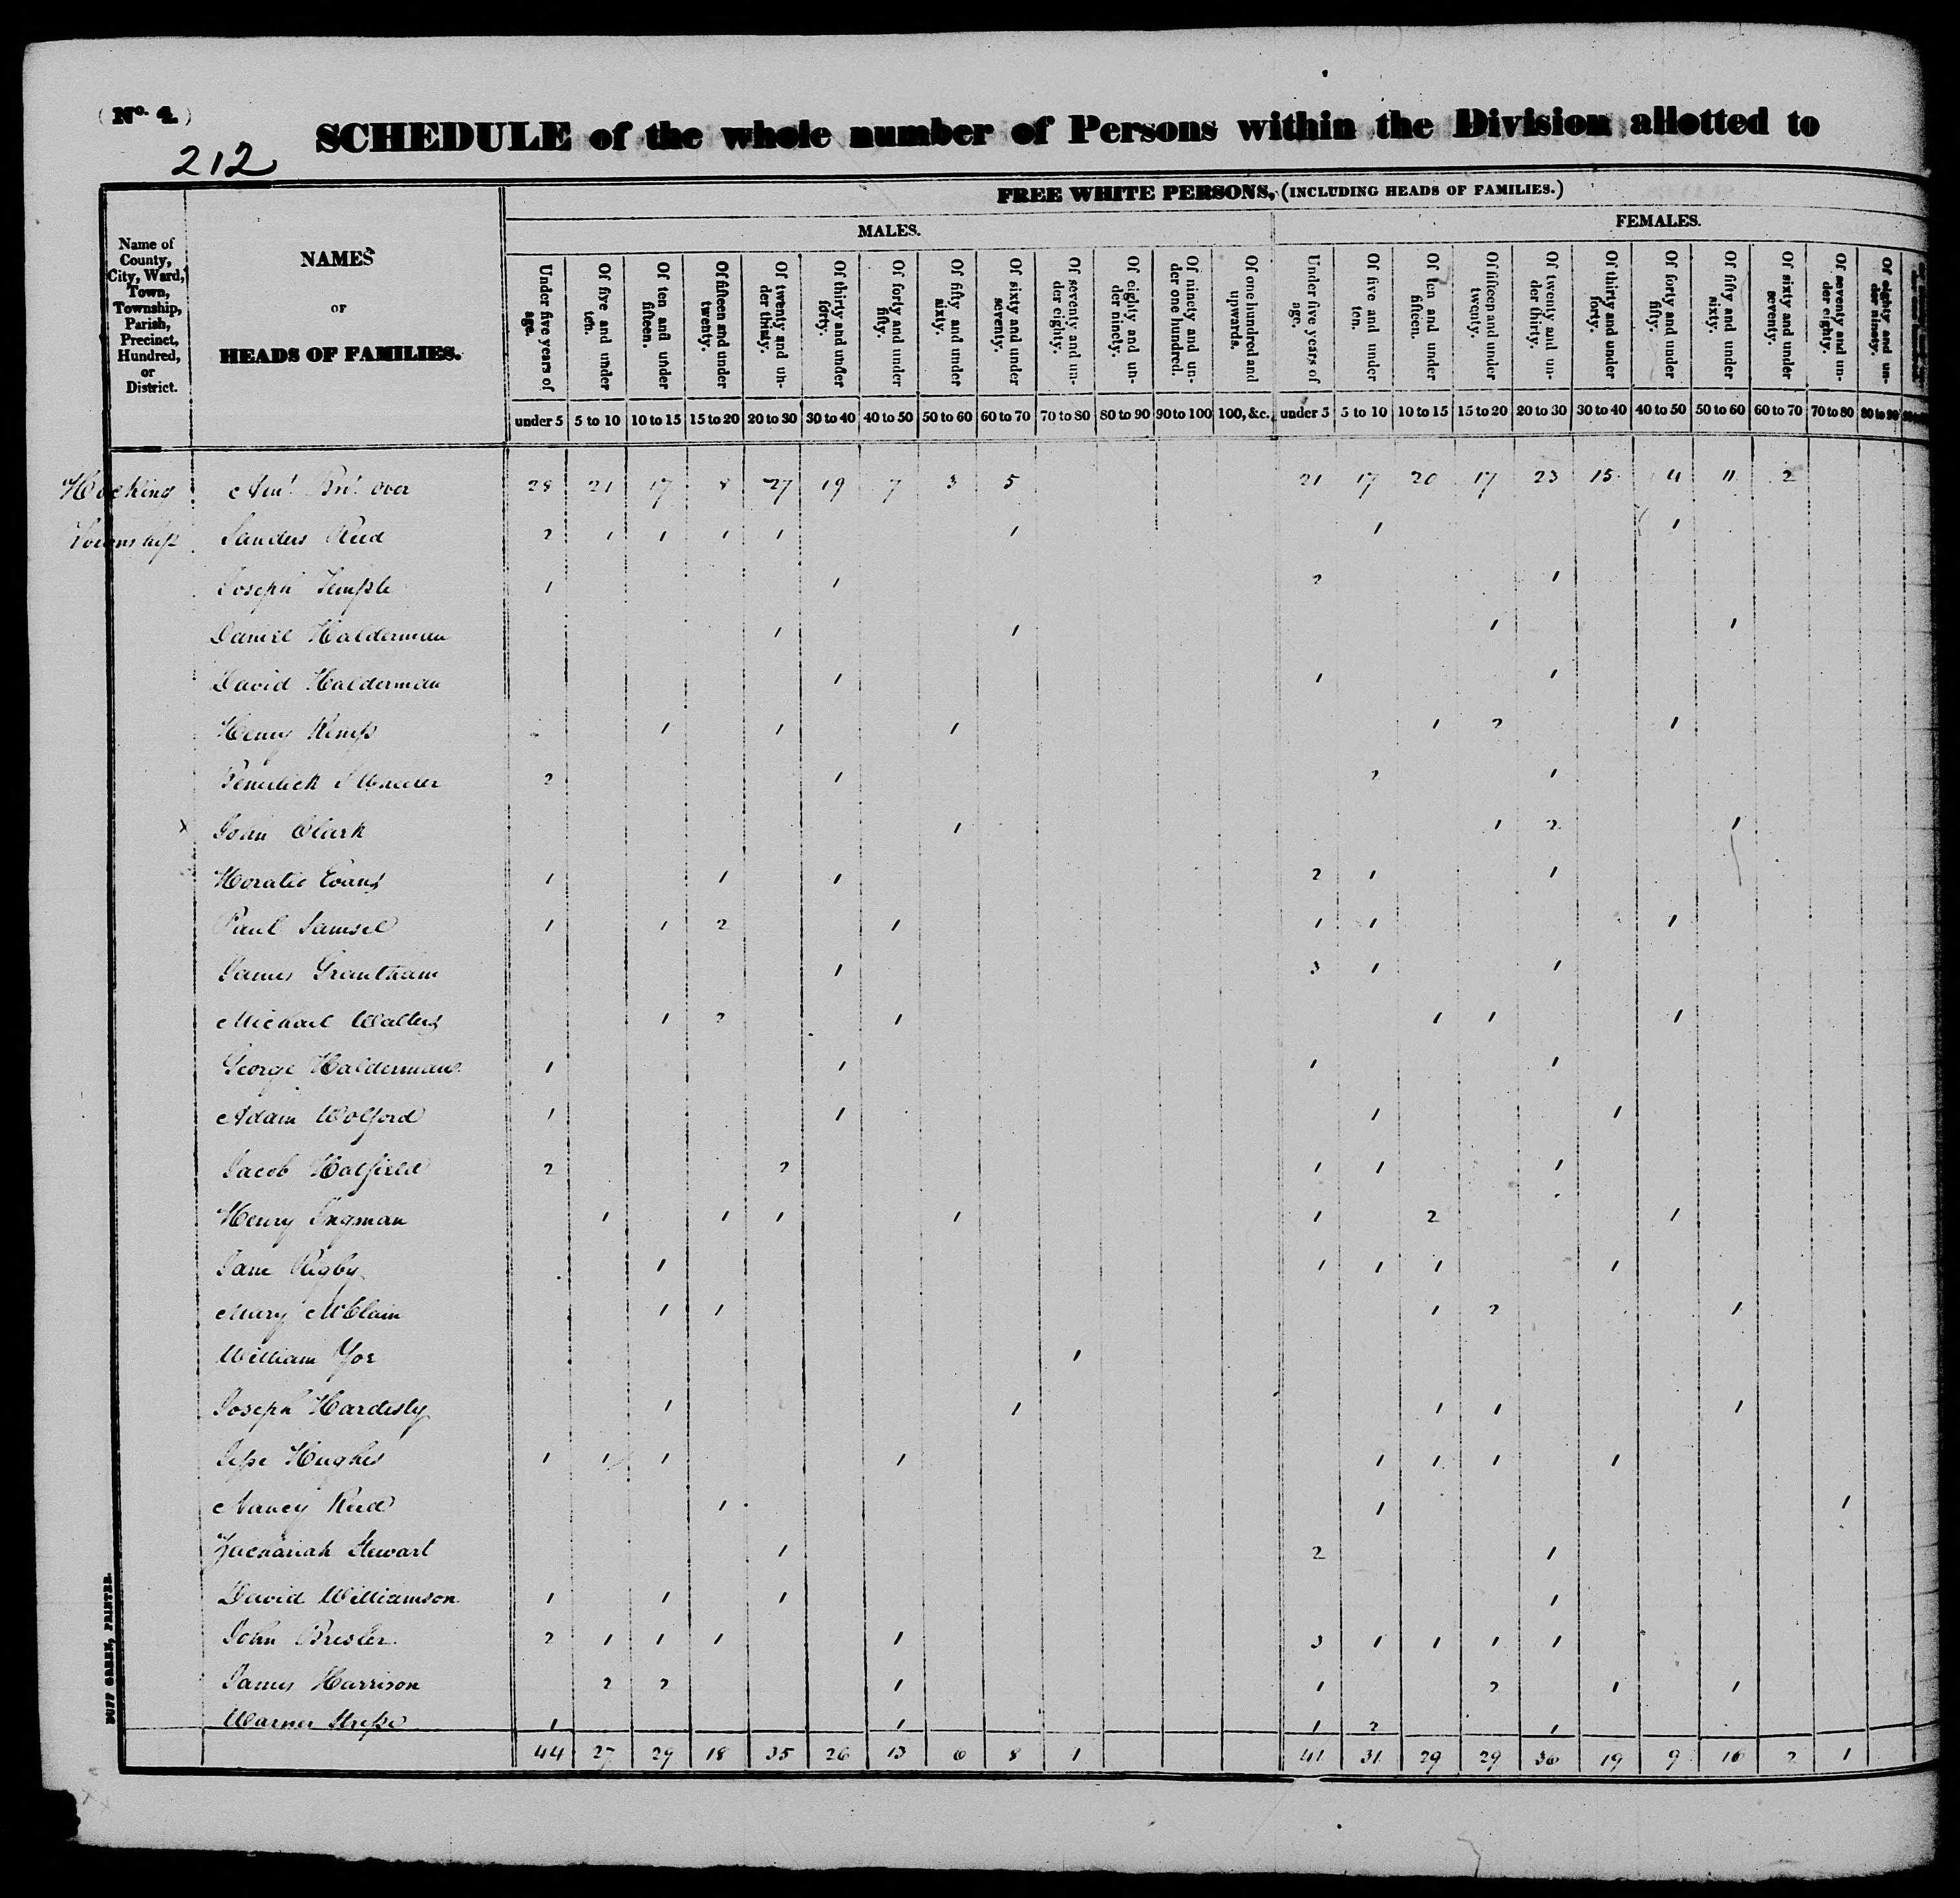 (No. 4.)
212
SCHEDULE of the whole number of Persons within the Division allotted to
Name of County, City, Ward, Town, Township, Parish, Precinct, Hundred, or District.
NAMES OF HEADS OF FAMILIES.
FREE WHITE PERSONS, (INCLUDING HEADS OF FAMILIES.)
MALES. FEMALES.
Under five years of age. Of five and under ten. Of ten and under fifteen. Of fifteen and under twenty. Of twenty and under thirty. Of thirty and under forty. Of forty and under fifty. Of fifty and under sixty. Of sixty and under seventy. Of seventy and under eighty. Of eighty and under ninety. Of ninety and under one hundred. Of one hundred and upwards. Under five years of age. Of five and under ten. Of ten and under fifteen. Of fifteen and under twenty. Of twenty and under thirty. Of thirty and under forty. Of forty and under fifty. Of fifty and under sixty. Of sixty and under seventy. Of seventy and under eighty. Of eighty and under ninety.
under 5 5 to 10 10 to 15 15 to 20 20 to 30 30 to 40 40 to 50 50 to 60 60 to 70 70 to 80 80 to 90 90 to 100 100, &c. under 5 5 to 10 10 to 15 15 to 20 20 to 30 30 to 40 40 to 50 50 to 60 60 to 70 70 to 80 80 to 90
Hocking Amt. Brt. over 28 21 17 8 27 19 7 3 5 21 17 20 17 23 15 4 11 2
Township Sanders Reed 2 1 1 1 1 1 1 1
Joseph Temple 1 1 2 1
Daniel Halderman 1 1 1 1
David Halderman 1 1 1
Henry Kemp 1 1 1 1 2 1
2 1 2 1
x John Clark 1 1 2 1
Horatio Evans 1 1 1 2 1 1
Paul Samsel 1 1 2 1 1 1 1
James Grantham 1 3 1 1
Michael Walters 1 2 1 1 1 1
George Halderman 1 1 1 1
Adam Wolford 1 1 1 1
Jacob Hatfield 2 2 1 1 1
Henry Ingman 1 1 1 1 1 2 1
Jane Rigby 1 1 1 1 1
Mary McClain 1 1 1 2 1
William 1
Joseph Hardesty 1 1 1 1 1
Jesse Hughes 1 1 1 1 1 1 1 1
Nancy Reed 1 1 1
Zachariah Stewart 1 2 1
David Williamson 1 1 1 1
John Bresler 2 1 1 1 1 3 1 1 1 1
James Harrison 2 2 1 1 2 1 1
Warner 1 1 1 2 1
44 27 29 18 35 26 13 6 8 1 41 31 29 29 36 19 9 16 2 1
DUFF GREEN, PRINTER.